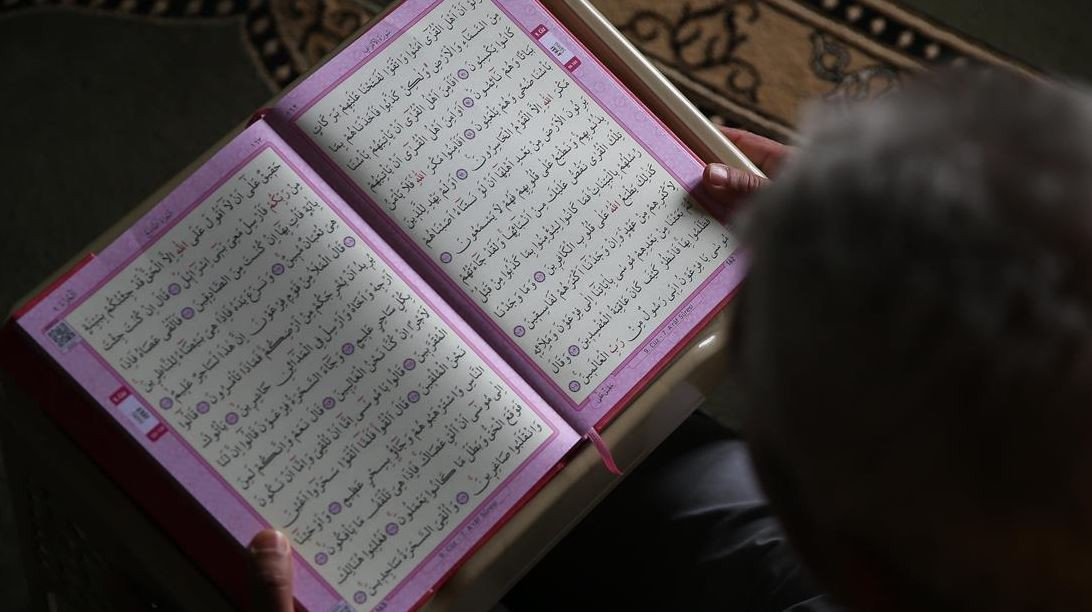 سُورَةُ الْاَعْرَافِ
وَلَوْ اَنَّ اَهْلَ الْقُرٰٓى اٰمَنُوا وَاتَّقَوْا لَفَتَحْنَا عَلَيْهِمْ بَرَكَاتٍ
مِنَ السَّمَٓاءِ وَالْاَرْضِ وَلٰكِنْ كَذَّبُوا فَاَخَذْنَاهُمْ بِمَا
كَانُوا يَكْسِبُونَ اَفَاَمِنَ اَهْلُ الْقُرٰٓى اَنْ يَأْتِيَهُمْ بَأْسُنَا
بَيَاتًا وَهُمْ نَٓائِمُونَ اَوَاَمِنَ اَهْلُ الْقُرٰٓى اَنْ يَأْتِيَهُمْ
بَأْسُنَا ضُحًى وَهُمْ يَلْعَبُونَ اَفَاَمِنُوا مَكْرَ اللّٰهِ فَلَا يَأْمَنُ
مَكْرَ اللّٰهِ اِلَّا الْقَوْمُ الْخَاسِرُونَ اَوَلَمْ يَهْدِ لِلَّذِينَ
يَرِثُونَ الْاَرْضَ مِنْ بَعْدِ اَهْلِهَٓا اَنْ لَوْ نَشَٓاءُ اَصَبْنَاهُمْ
بِذُنُوبِهِمْ وَنَطْبَعُ عَلٰى قُلُوبِهِمْ فَهُمْ لَا يَسْمَعُونَ
تِلْكَ الْقُرٰى نَقُصُّ عَلَيْكَ مِنْ اَنْبَٓائِهَا وَلَقَدْ جَٓاءَتْهُمْ
رُسُلُهُمْ بِالْبَيِّنَاتِ فَمَا كَانُوا لِيُؤْمِنُوا بِمَا كَذَّبُوا مِنْ قَبْلُ
كَذٰلِكَ يَطْبَعُ اللّٰهُ عَلٰى قُلُوبِ الْكَافِرِينَ وَمَا وَجَدْنَا
لِاَكْثَرِهِمْ مِنْ عَهْدٍ وَاِنْ وَجَدْنَٓا اَكْثَرَهُمْ لَفَاسِقِينَ
بَعَثْنَا مِنْ بَعْدِهِمْ مُوسٰى بِاٰيَاتِنَٓا اِلٰى فِرْعَوْنَ وَمَلَائِهِ
فَظَلَمُوا بِهَا فَانْظُرْ كَيْفَ كَانَ عَاقِبَةُ الْمُفْسِدِينَ وَقَالَ
مُوسٰى يَا فِرْعَوْنُ اِنِّي رَسُولٌ مِنْ رَبِّ الْعَالَمِينَ
9. Cüz - 7. A'raf Sûresi
حَقِيقٌ عَلٰٓى اَنْ لَٓا اَقُولَ عَلَى اللّٰهِ اِلَّا الْحَقَّ قَدْ جِئْتُكُمْ بِبَيِّنَةٍ
مِنْ رَبِّكُمْ فَاَرْسِلْ مَعِيَ بَنِٓي اِسْرَٓائِلَ قَالَ اِنْ كُنْتَ جِئْتَ
بِاٰيَةٍ فَأْتِ بِهَٓا اِنْ كُنْتَ مِنَ الصَّادِقِينَ فَاَلْقٰى عَصَاهُ فَاِذَا
هِيَ ثُعْبَانٌ مُبِينٌ وَنَزَعَ يَدَهُ فَاِذَا هِيَ بَيْضَٓاءُ لِلنَّاظِرِينَ
قَالَ الْمَلَاُ مِنْ قَوْمِ فِرْعَوْنَ اِنَّ هٰذَا لَسَاحِرٌ عَلِيمٌ
يُرِيدُ اَنْ يُخْرِجَكُمْ مِنْ اَرْضِكُمْ فَمَاذَا تَأْمُرُونَ قَالُٓوا
اَرْجِهْ وَاَخَاهُ وَاَرْسِلْ فِي الْمَدَٓائِنِ حَاشِرِينَ يَأْتُوكَ
بِكُلِّ سَاحِرٍ عَلِيمٍ وَجَٓاءَ السَّحَرَةُ فِرْعَوْنَ قَالُٓوا اِنَّ لَنَا
لَاَجْرًا اِنْ كُنَّا نَحْنُ الْغَالِبِينَ قَالَ نَعَمْ وَاِنَّكُمْ لَمِنَ
الْمُقَرَّبِينَ قَالُوا يَا مُوسٰٓى اِمَّٓا اَنْ تُلْقِيَ وَاِمَّٓا اَنْ نَكُونَ
نَحْنُ الْمُلْقِينَ قَالَ اَلْقُوا فَلَمَّٓا اَلْقَوْا سَحَرُٓوا اَعْيُنَ
النَّاسِ وَاسْتَرْهَبُوهُمْ وَجَٓاؤُ۫ بِسِحْرٍ عَظِيمٍ وَاَوْحَيْنَٓا
اِلٰى مُوسٰٓى اَنْ اَلْقِ عَصَاكَ فَاِذَا هِيَ تَلْقَفُ مَا يَأْفِكُونَ
فَوَقَعَ الْحَقُّ وَبَطَلَ مَا كَانُوا يَعْمَلُونَ فَغُلِبُوا هُنَالِكَ
وَانْقَلَبُوا صَاغِرِينَ وَاُلْقِيَ السَّحَرَةُ سَاجِدِينَ
9. Cüz - 7. A'raf Sûresi